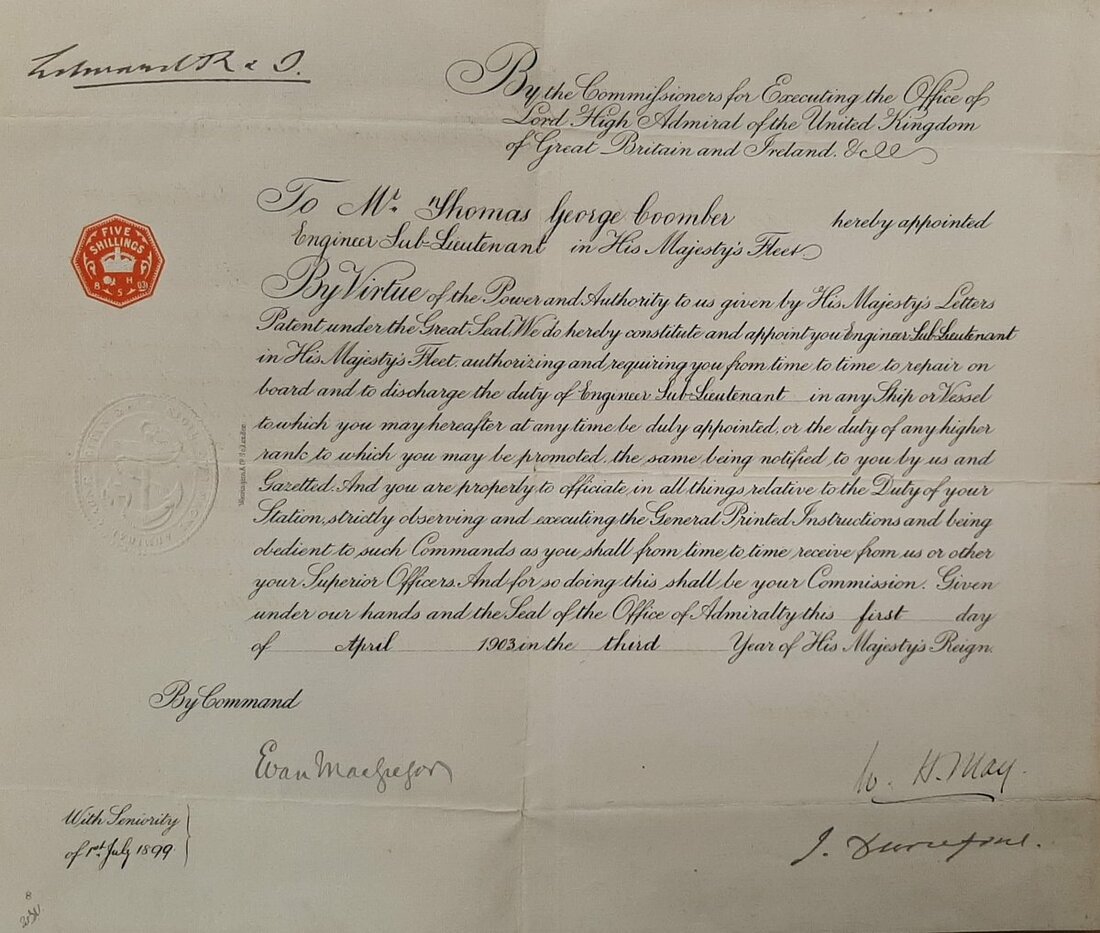 Edward R & I.
By the Commissioners for Executing the Office of
Lord High Admiral of the United Kingdom
of Great Britain and Ireland. &c
To Mr. Thomas George Coomber hereby appointed
Engineer Sub-Lieutenant in His Majesty's Fleet
FIVE
SHILLINGS
H
8 5 03
By Virtue of the Power and Authority to us given by His Majesty's Letters
Patent under the Great Seal, We do hereby constitute and appoint you Engineer Sub-Lieutenant
in His Majesty's Fleet, authorizing and requiring you from time to time to repair on
board and to discharge the duty of Engineer Sub-Lieutenant in any Ship or Vessel
to which you may hereafter at any time be duly appointed, or the duty of any higher
rank to which you may be promoted, the same being notified to you by us and
Gazetted. And you are properly to officiate in all things relative to the Duty of your
Station, strictly observing and executing the General Printed Instructions and being
obedient to such Commands as you shall from time to time receive from us or other
your Superior Officers. And for so doing this shall be your Commission. Given
under our hands and the Seal of the Office of Admiralty this first day
of April 1903 in the third Year of His Majesty's Reign.
By Command
Evan MacGregor
W. H. May.
With Seniority
of 1st July 1899
J.